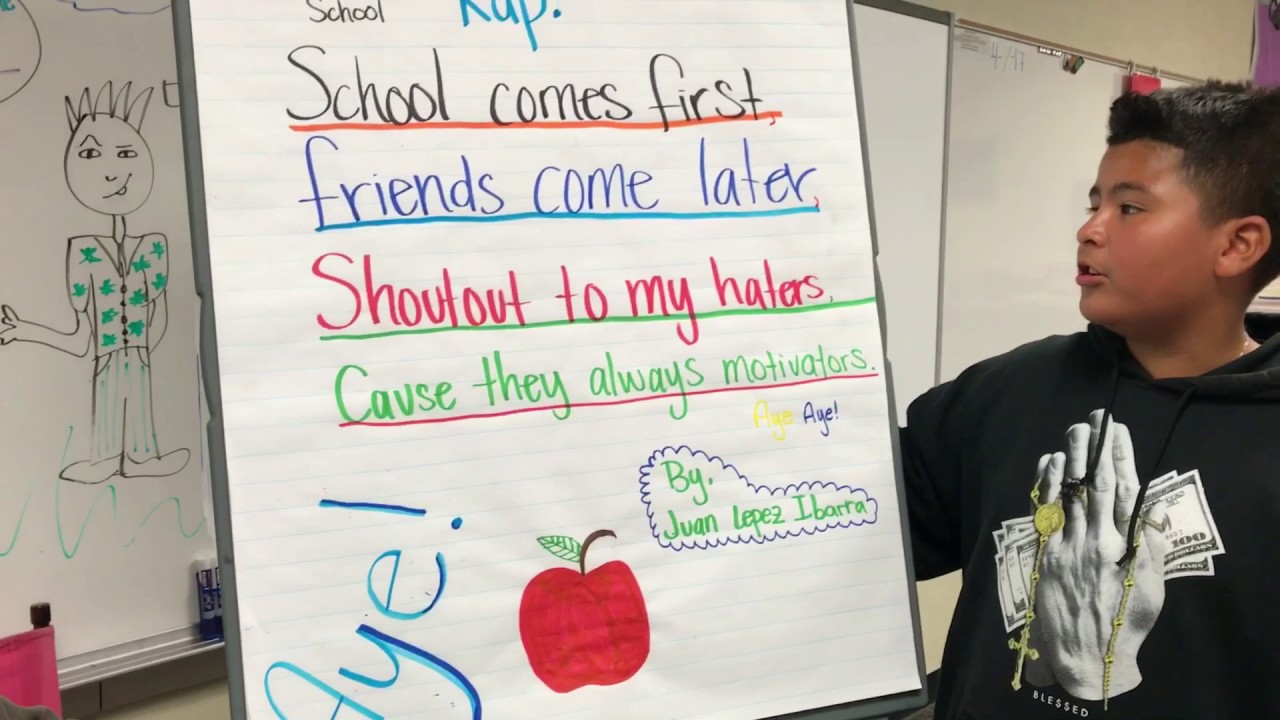 School Rap!
School comes first,
friends come later,
Shoutout to my haters,
Cause they always motivators.
Aye Aye!
By.
Juan Lepez Ibarra
Aye!
4-/17
100
BLE$$ED